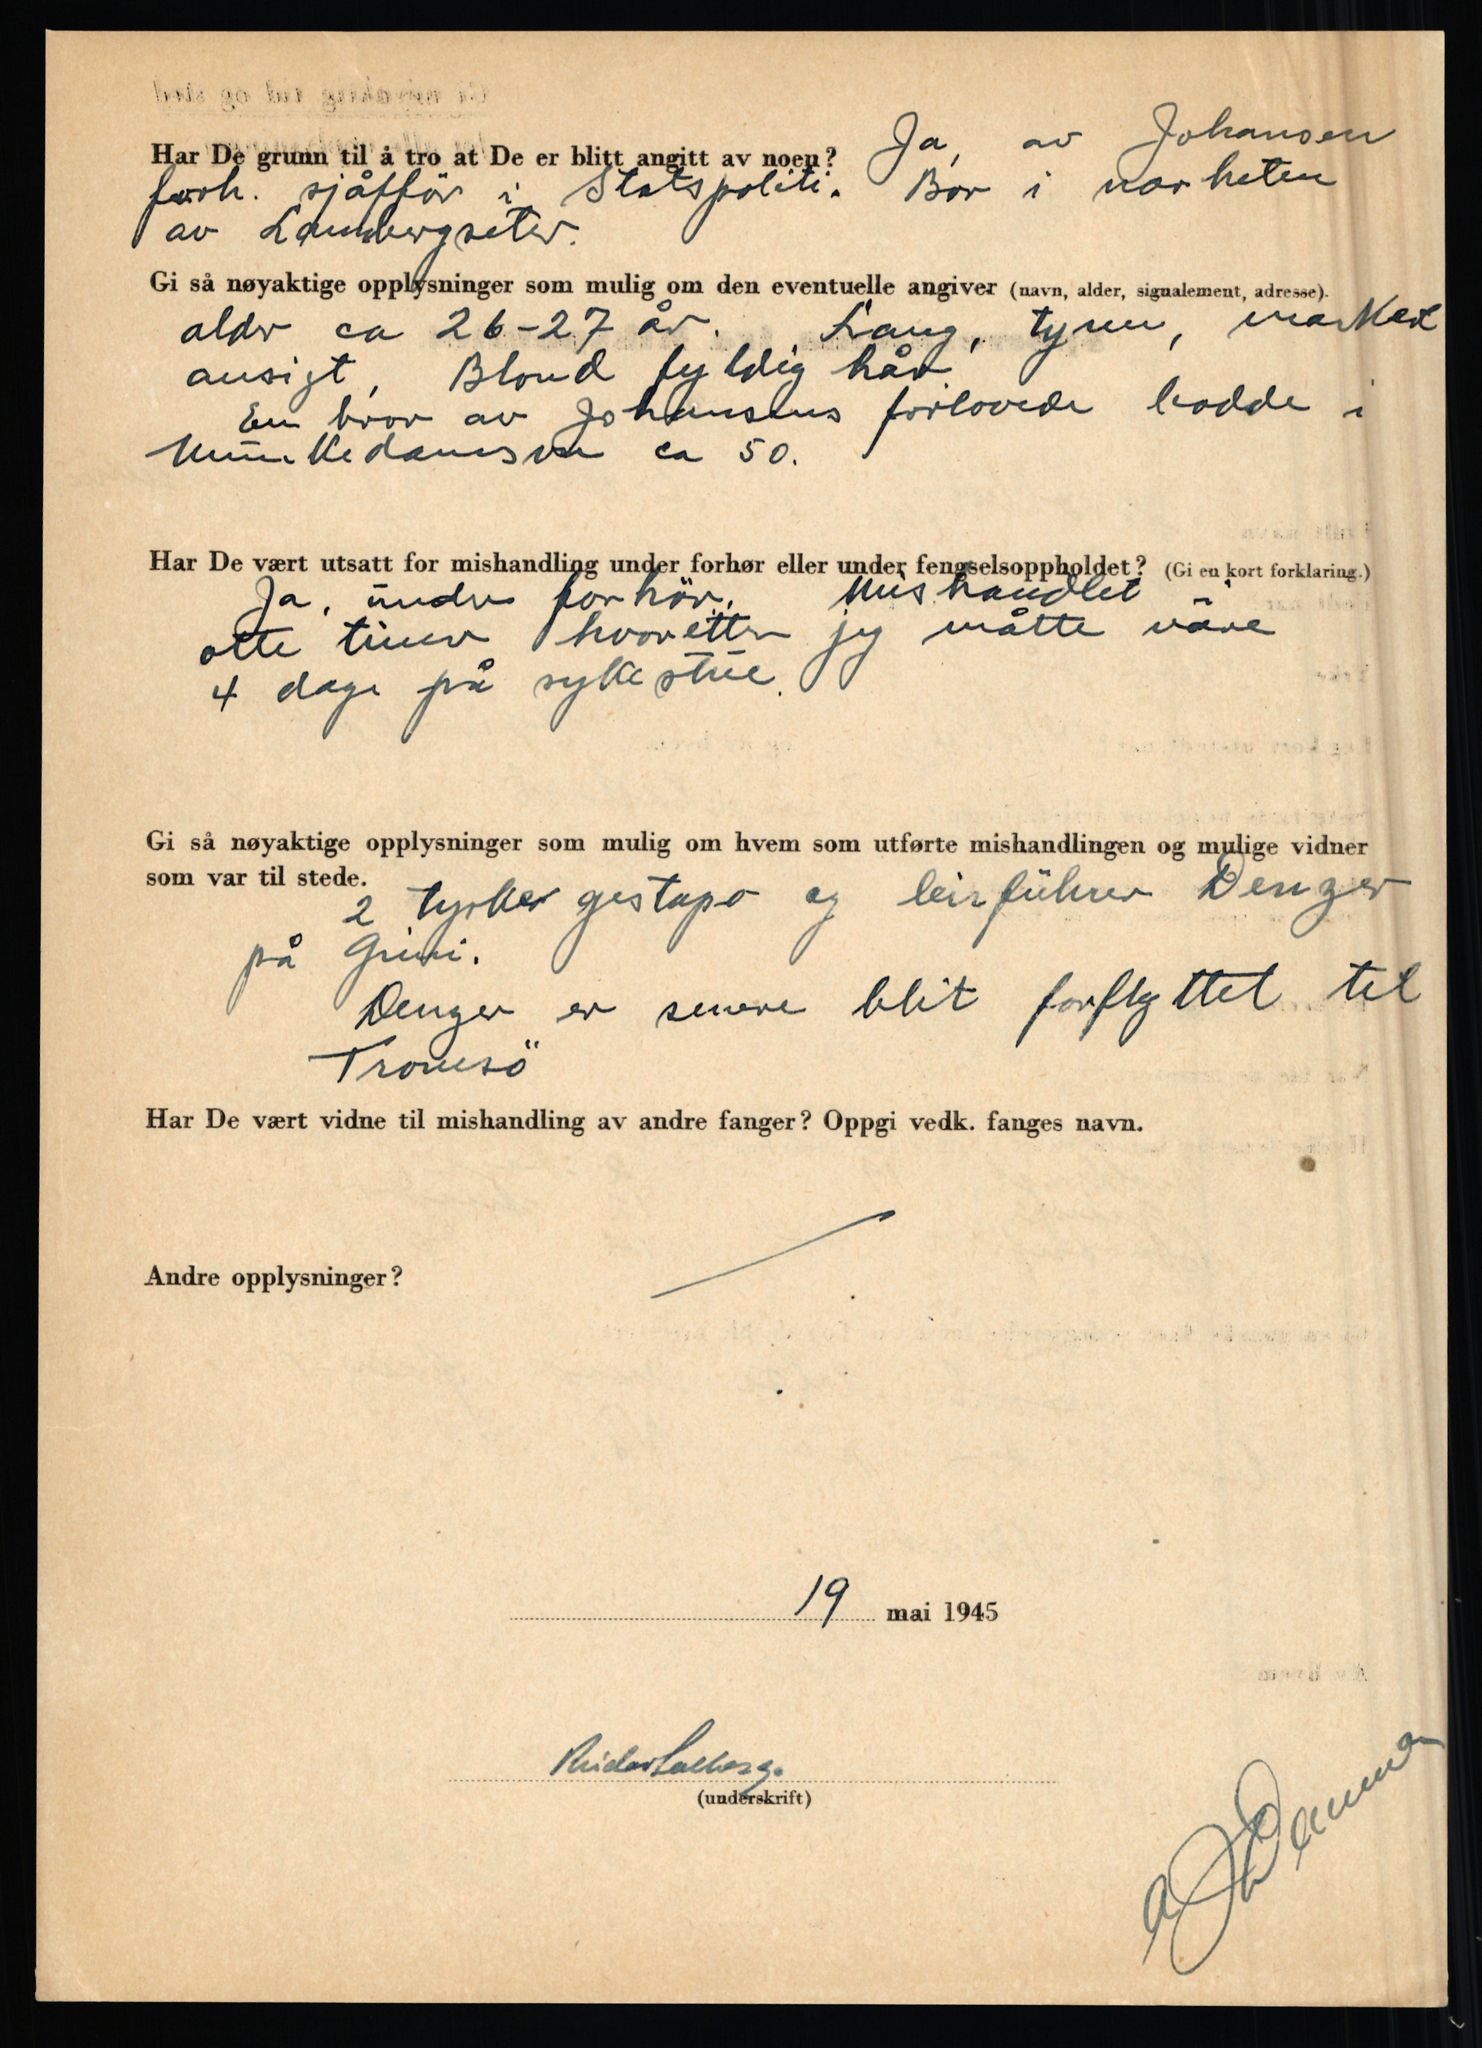 Har De grunn til å tro at De er blitt angitt av noen? Ja, av Johansen
forh. sjåffør i Statspoliti. Bor i narheten
av Lambergseter.
Gi så nøyaktige opplysninger som mulig om den eventuelle angiver (navn, alder, signalement, adresse).
alder ca 26-27 år. Lang, tynn, marked
ansigt, Blond fyldig hår
En bror av Johansens forlovede bodde i
Munkedamsvn ca 50.
Har De vært utsatt for mishandling under forhør eller under fengselsoppholdet? (Gi en kort forklaring.)
Ja, under forhör. Mishandlet i
otte timer hvoretter jeg måtte väre
4 dage på sykestue.
Gi så nøyaktige opplysninger som mulig om hvem som utførte mishandlingen og mulige vidner
som var til stede.
2 tysker gestapo og leirführer Denzer
på Grini.
Denzer er senere blit forflyttet til
Tromsö
Har De vært vidne til mishandling av andre fanger? Oppgi vedk. fanges navn.
Andre opplysninger?
19 mai 1945
Reidar Solberg.
(underskrift)